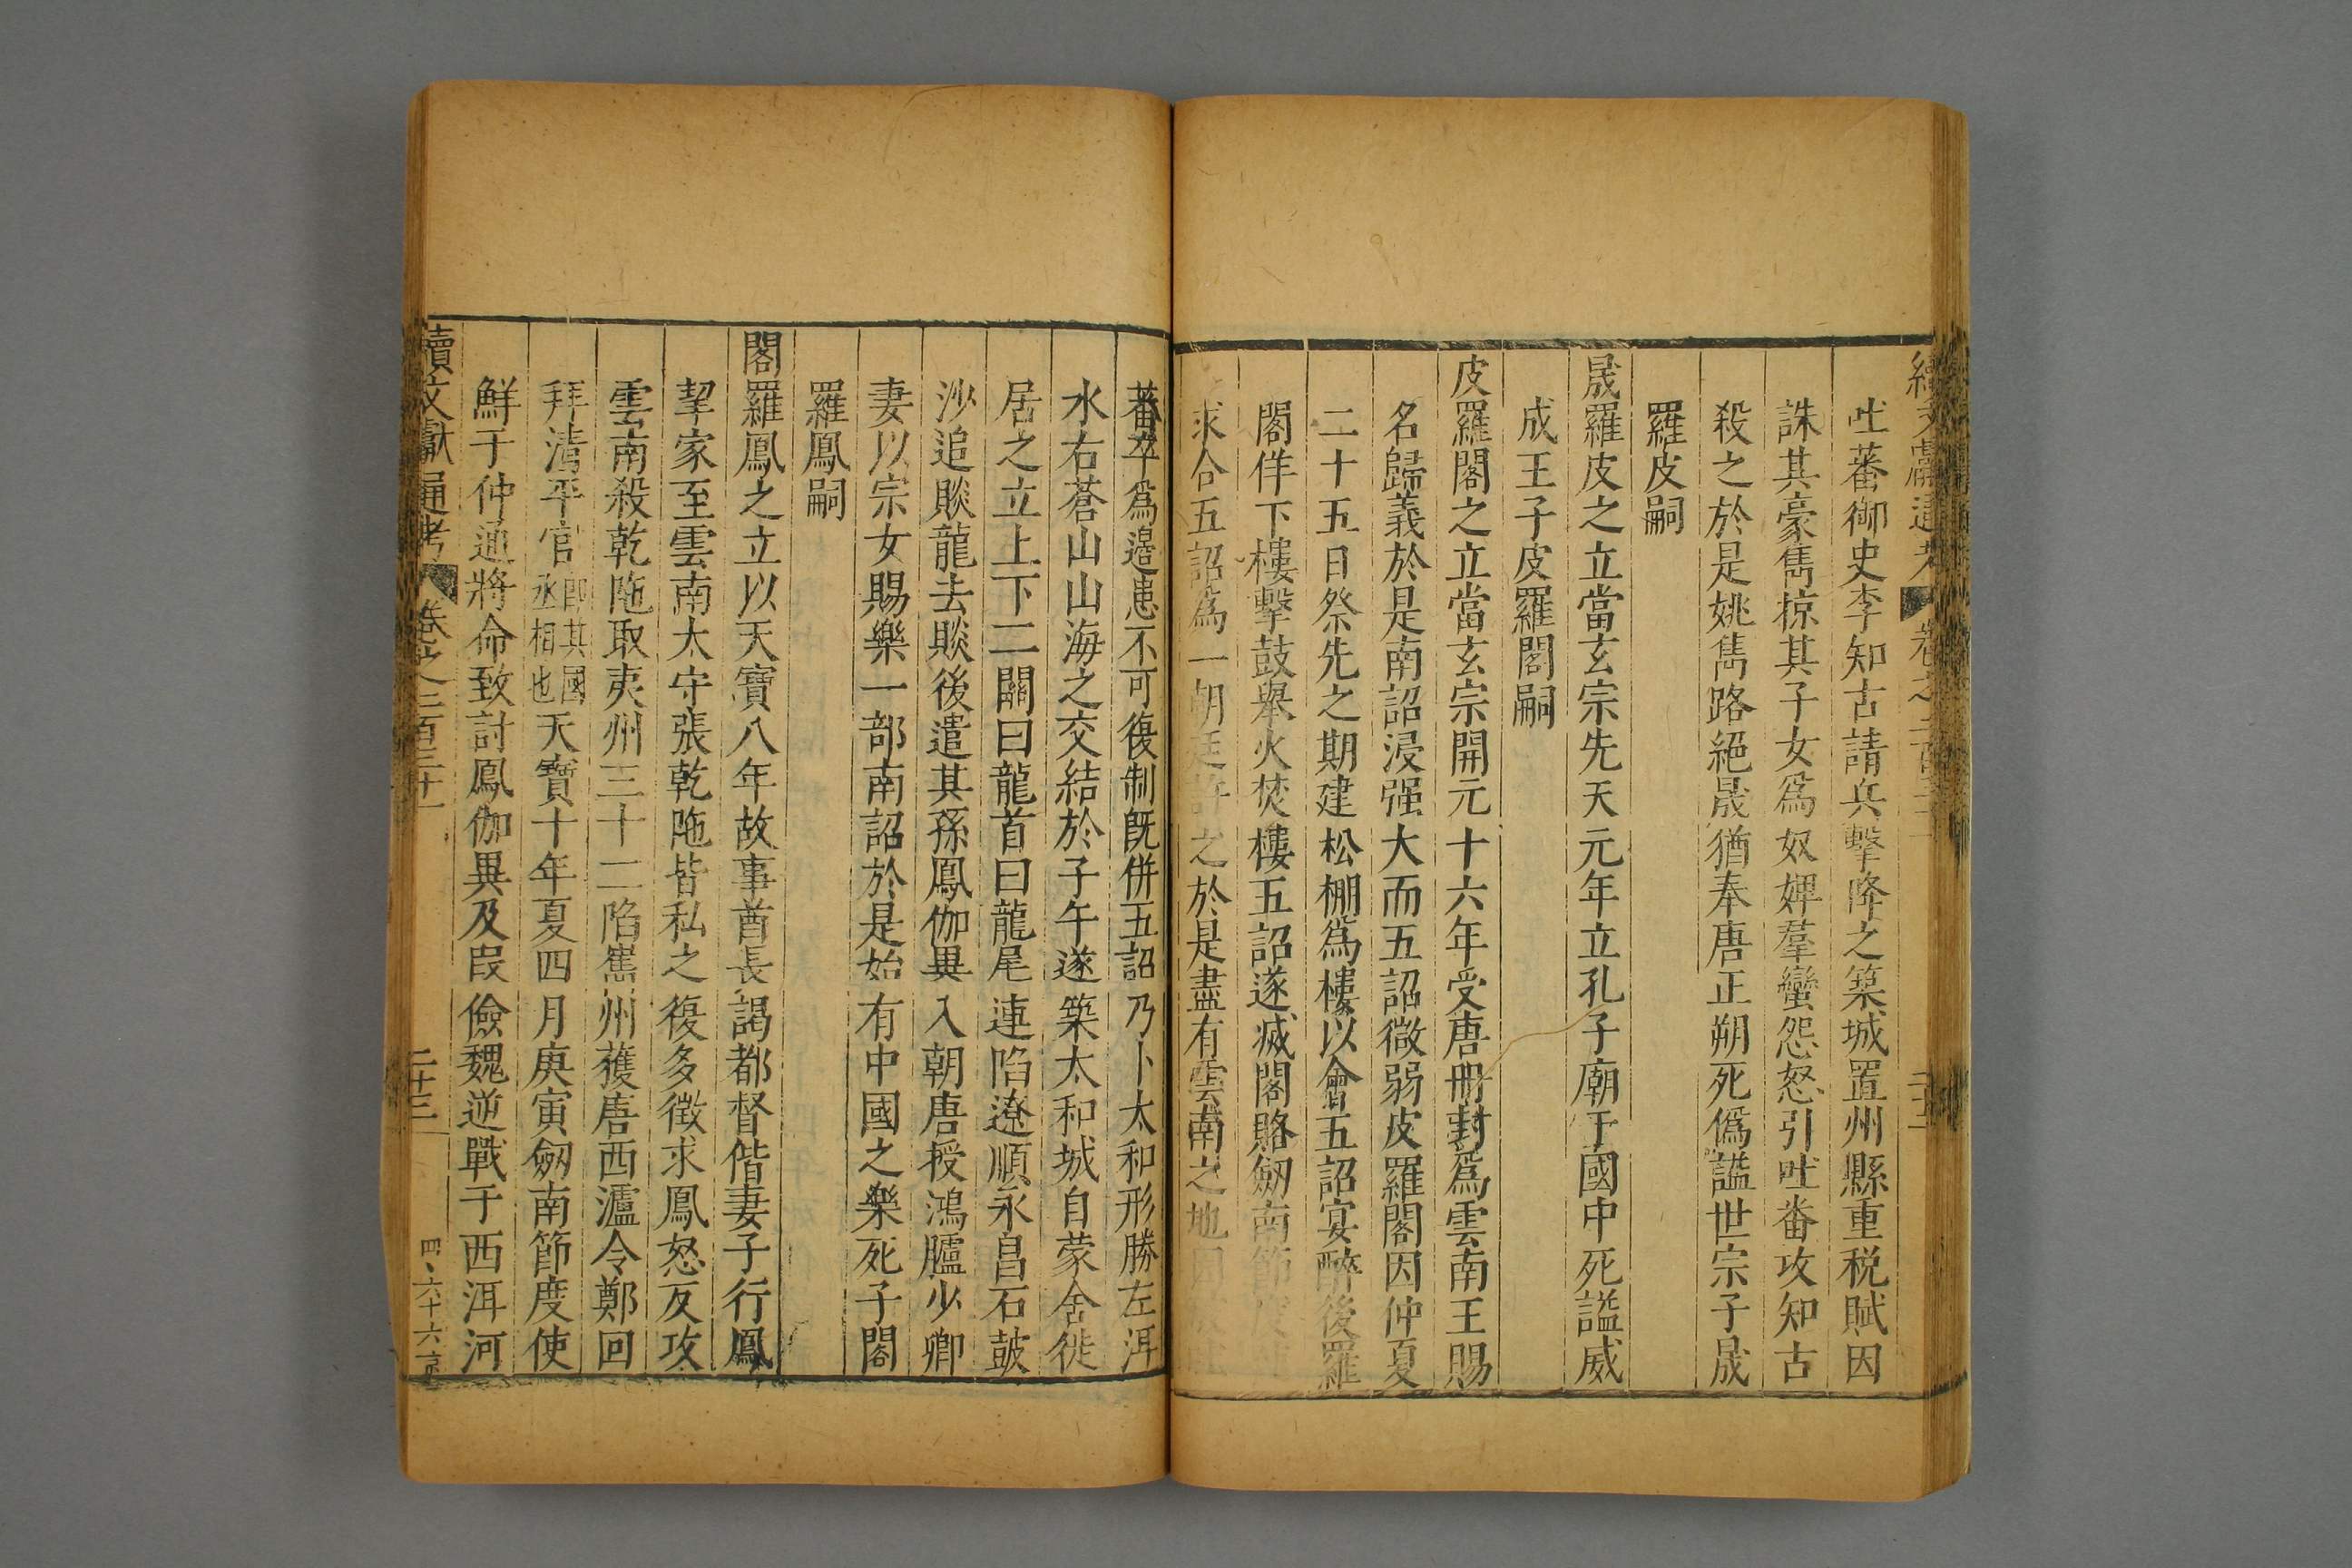 吐蕃御史李知古請兵擊降之築城置州縣重税賦因
誅其豪雋掠其子女爲奴婢羣蠻怨怒引吐番攻知古
殺之於是姚雋路絕晟猶奉唐正朔死僞謚世宗子晟
羅皮嗣
晟羅皮之立當玄宗先天元年立孔子廟于國中死謚威
成王子皮羅閣嗣
皮羅閣之立當玄宗開元十六年受唐冊封爲雲南王賜
名歸義於是南詔浸强大而五詔微弱皮羅閣因仲夏
二十五日祭先之期建松棚爲樓以會五詔宴醉後羅
閣佯下樓擊鼓舉火焚樓五詔遂滅閣賂劒南節
求合五詔爲一朝廷許之於是盡有雲南之地
蕃卒爲邊患不可復制旣併五詔乃卜太和形勝左洱
水右蒼山山海之交結於子午遂築太和城自蒙舍徙
居之立上下二關曰龍首曰龍尾連陷遼順永昌石皷
沙追賧龍去賧後遣其孫鳳伽異入朝唐授鴻臚少卿
妻以宗女賜樂一部南詔於是始有中國之樂死子閣
羅鳳嗣
閣羅鳳之立以天寶八年故事酋長謁都督偕妻子行鳳
挈家至雲南太守張乾陁皆私之復多徵求鳳怒反攻
雲南殺乾陁取夷州三十二陷巂州獲唐西瀘令鄭回
拜清平官即其國丞相也天寶十年夏四月庚寅劒南節度使
鮮于仲通將命致討鳳伽異及段儉魏逆戰于西洱河
續文獻通考 卷之三百三十一 二十三 四六十六